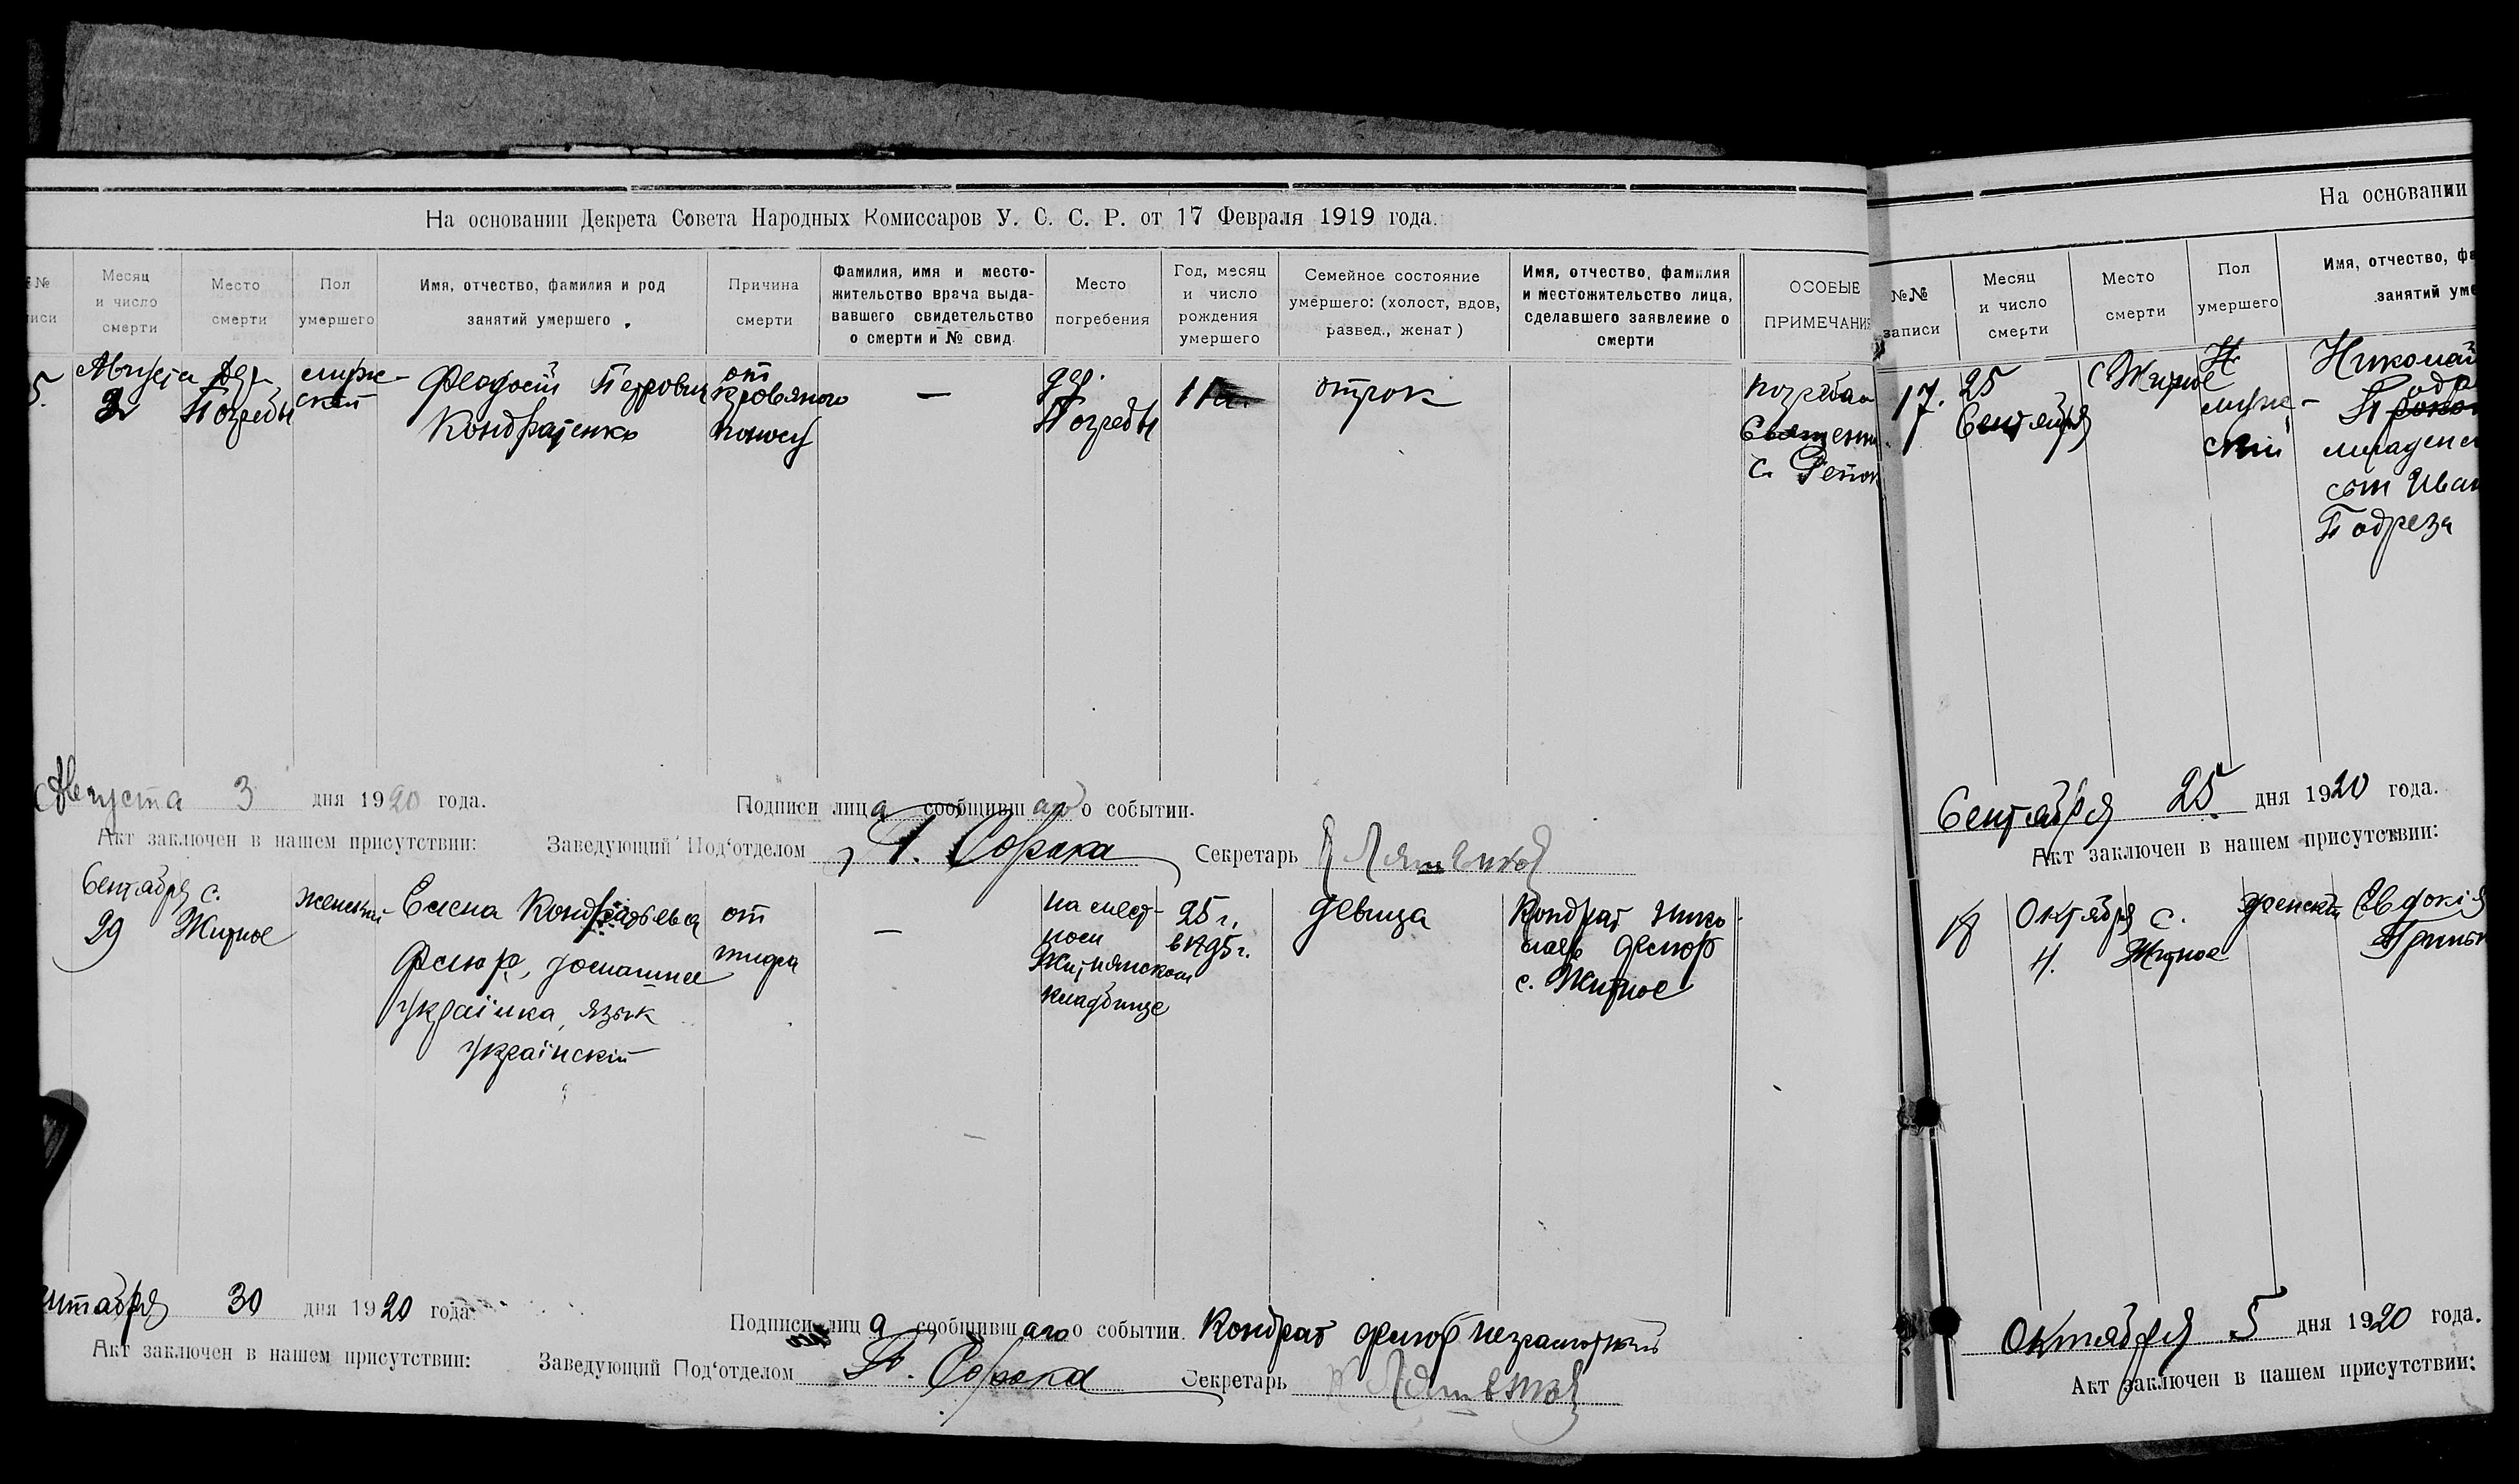 На основании Декрета Совета Народных Комиссаров У. С. С. Р. от 17 Февраля 1919 года.
№
иси
Месяц
и число
смерти
Место
смерти
Пол
умершего
Имя, отчество, фамилия и род
занятий умершего
Причина
смерти
Фамилия, имя и место-
жительство врача выда-
вавшего свидетельство
о смерти и № свид.
Место
погребения
Год, месяц
и число
рождения
умершего
Семейное состояние
умершего: (холост, вдов,
развед., женат)
Имя, отчество, фамилия
и местожительство лица,
сделавшего заявление о
смерти
ОСОБЫЕ
ПРИМЕЧАНИ
5.
Августа
2
дер.
Погребы
мужс-
кий
Феодосий Петрович
Кондратенко
от
кровяного
поносу
—
дер.
Погребы
11
отрок
погребен
Священни
с.
Августа 3 дня 1920 года.
Подписи лица сообщившаго о событии.
Акт заключен в нашем присутствии:
Заведующий Под'отделом Г. Сорока
Секретарь
Сентября
29
с.
Житное
женский
Елена Кондратьевна
Фемор, домашнее
украінка, язык
украінскій
от
тифа
—
на мест-
ном
Житнянском
кладбище
25 г.
в 1895 г.
девица
Кондрат Нико-
лаев Фемор
с. Житное
нтября 30 дня 1920 года
Подписи лица сообщившаго о событии. Кондрат Фемор неграмотный
Акт заключен в нашем присутствии:
Заведующий Под'отделом Г. Сорока
Секретарь
На основании
№№
записи
Месяц
и число
смерти
Место
смерти
Пол
умершего
Имя, отчество, фа
занятий уме
17.
25
Сентября
с Житное
мужс-
кій
Николай
Подр
младенец
сын Иван
Подреза
Сентября 25 дня 1920 года.
Акт заключен в нашем присутствии:
18
Октября
4.
с.
Житное
женскій
Евдокія
Октября 5 дня 1920 года.
Акт заключен в нашем присутствии: